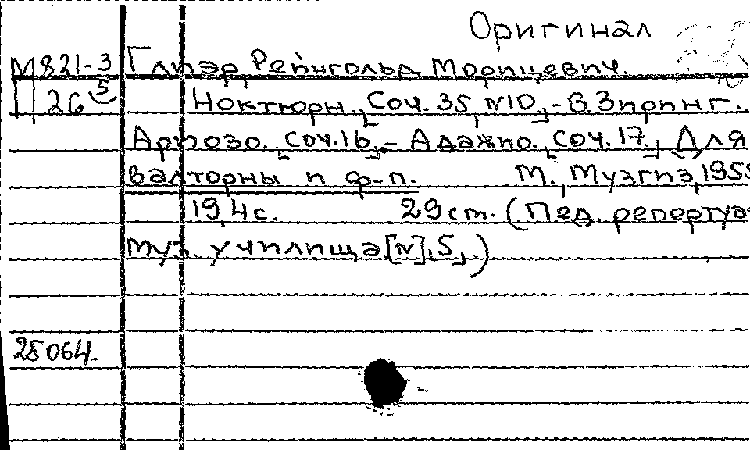 Оригинал
М821-3 Глиэр Рейнгольд Морицевич.
26 5 Ноктюрн. Соч. 35, №10, - В. Зпрпнг.
Ариозо. Соч. 16, - Адажио. Соч. 17, Для
валторны и ф-п. М., Музгиз, 195
19, 4с. 29 cm. (Пед. репертуа
муз. училища [№] 5.)
25064.